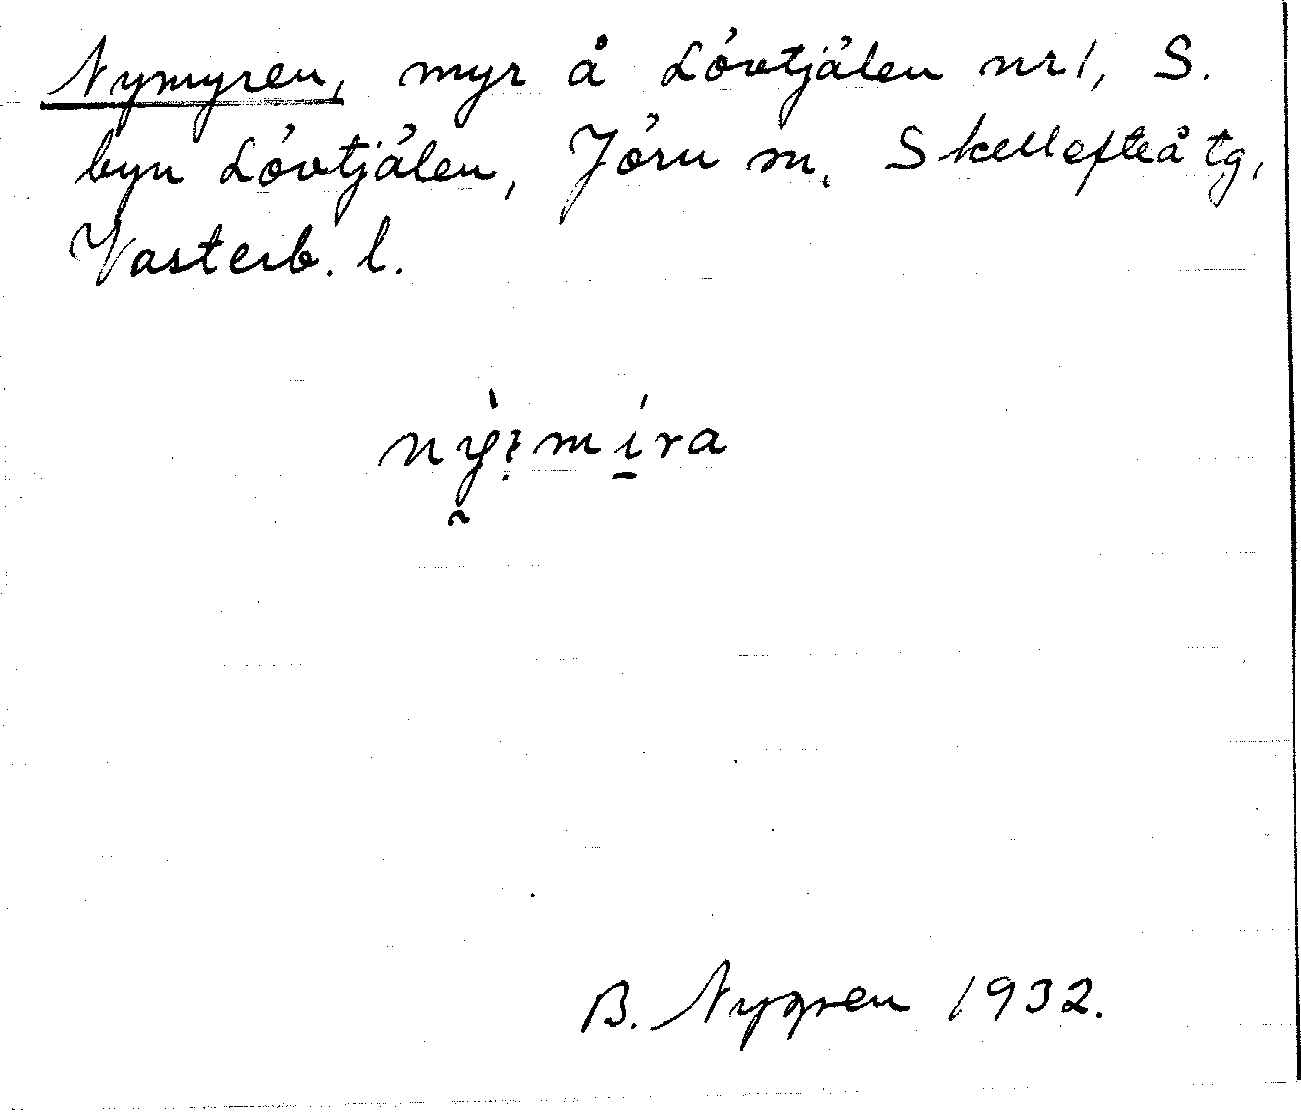 Nymyren, myr å Lövtjälen nr 1, S.
byn Lövtjälen, Jörn sn, Skellefteå tg,
Västerb. l.
B. Nygren 1932.